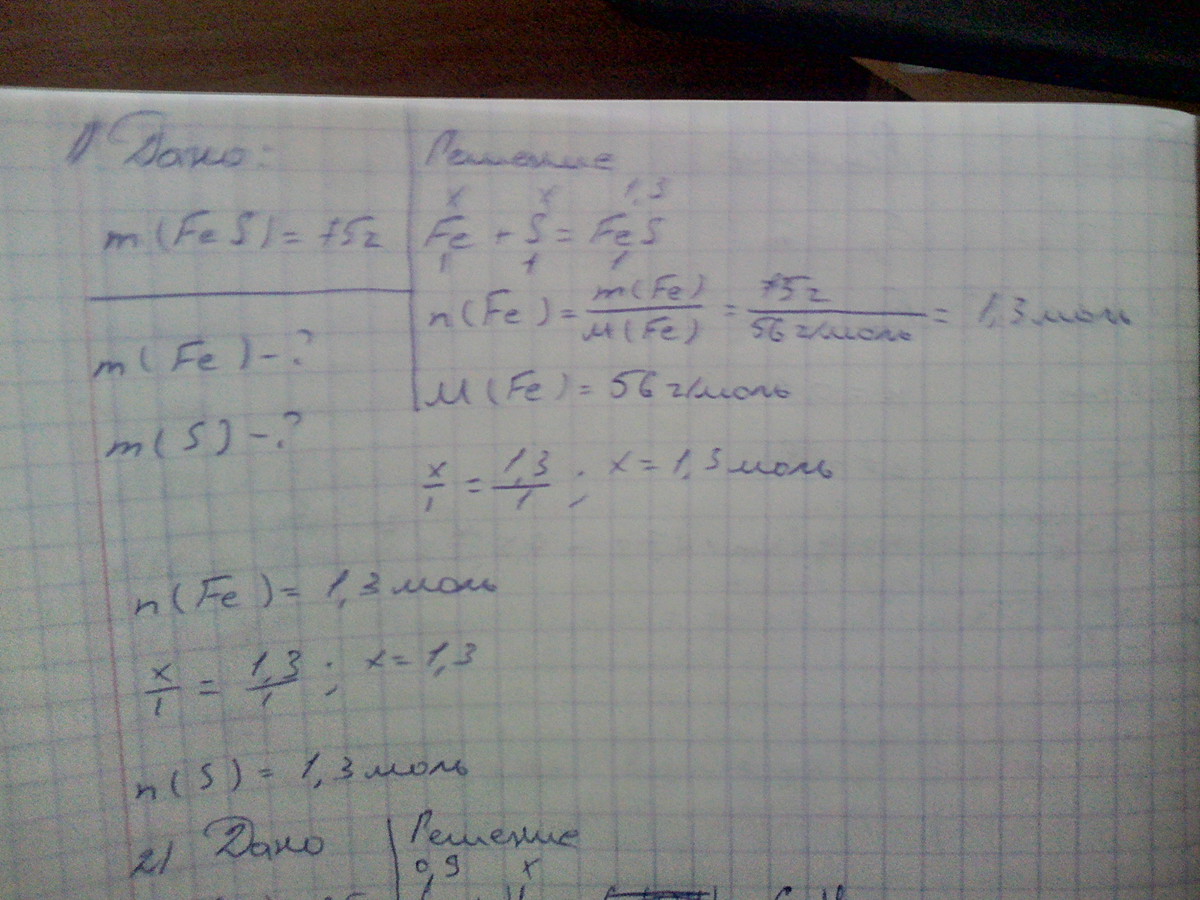 1) Дано:
m(FeS)=75г
m(Fe)-?
m(S)-?
Решение
x x 1,3
Fe + S = FeS
1 1 1
n(Fe)= m(Fe)/M(Fe) = 75г/56г/моль = 1,3 моль
M(Fe)= 56 г/моль
x/1 = 1,3/1 ; x = 1,3 моль
n(Fe)= 1,3 моль
x/1 = 1,3/1 ; x = 1,3
n(S) = 1,3 моль
2) Дано
Решение
0,9 x